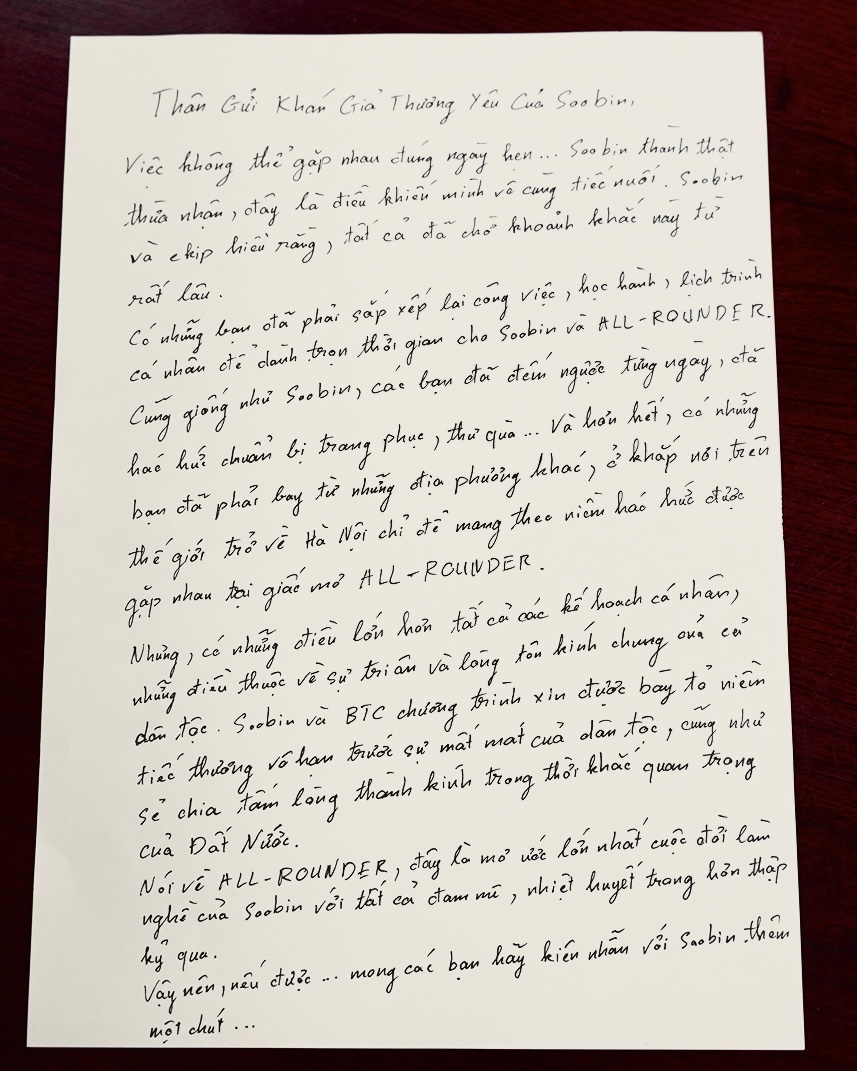 Thân Gửi Khán Giả Thương Yêu Của Soobin,
Việc không thể gặp nhau đúng ngày hẹn... Soobin thành thật
thừa nhận, đây là điều khiến mình vô cùng tiếc nuối. Soobin
và ekip hiểu rằng, tất cả đã chờ khoảnh khắc này từ
rất lâu.
Có những bạn đã phải sắp xếp lại công việc, học hành, lịch trình
cá nhân để dành trọn thời gian cho Soobin và ALL-ROUNDER.
Cũng giống như Soobin, các bạn đã đếm ngược từng ngày, đã
háo hức chuẩn bị trang phục, thư quà... Và hơn hết, có những
bạn đã phải bay từ những địa phương khác, ở khắp nơi trên
thế giới trở về Hà Nội chỉ để mang theo niềm háo hức được
gặp nhau tại giấc mơ ALL-ROUNDER.
Nhưng, có những điều lớn hơn tất cả các kế hoạch cá nhân,
những điều thuộc về sự tri ân và lòng tôn kính chung của cả
dân tộc. Soobin và BTC chương trình xin được bày tỏ niềm
tiếc thương vô hạn trước sự mất mát của dân tộc, cũng như
sẻ chia tấm lòng thành kính trong thời khắc quan trọng
của Đất Nước.
Nói về ALL-ROUNDER, đây là mơ ước lớn nhất cuộc đời làm
nghề của Soobin với tất cả đam mê, nhiệt huyết trong hơn thập
kỷ qua.
Vậy nên, nếu được... mong các bạn hãy kiên nhẫn với Soobin thêm
một chút...